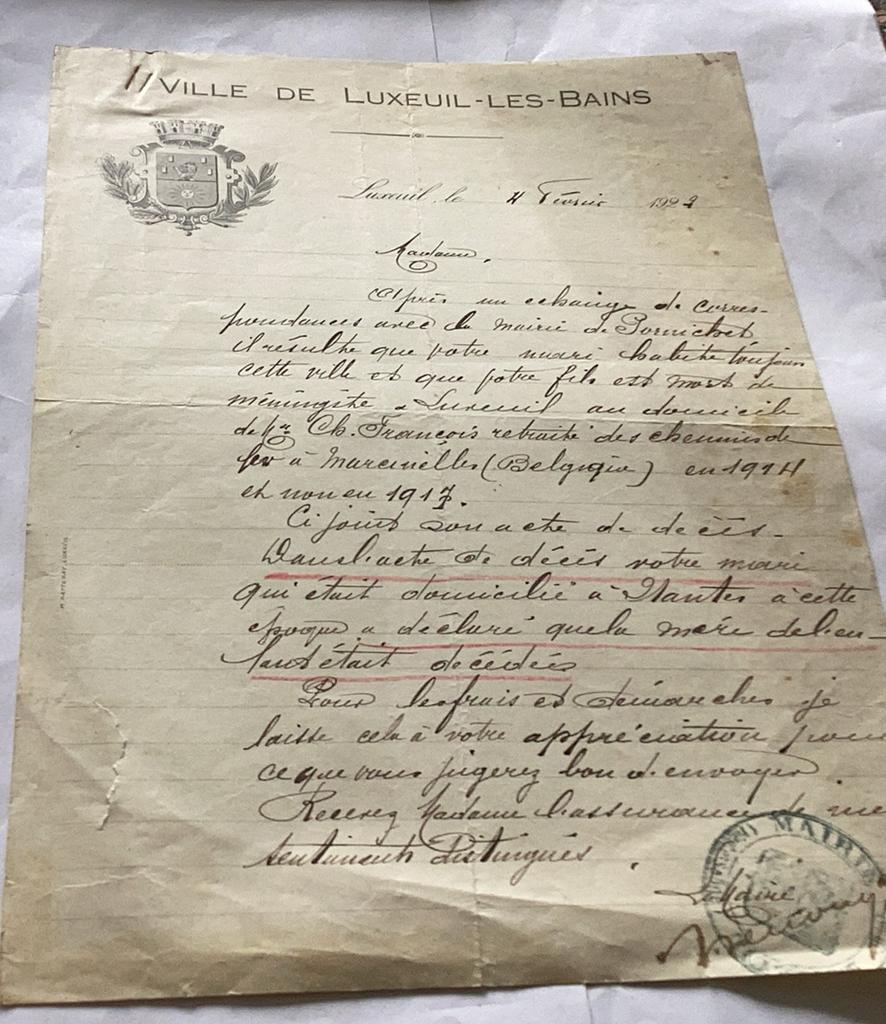 VILLE DE LUXEUIL-LES-BAINS
Luxeuil, le 4 Février 192
Madame,
Après un echange de corres-
pondances avec la mairie de Pornichet
il résulte que votre mari habite toujours
cette ville et que votre fils est mort de
méningite a Luxeuil au domicile
de Mr Ch. François retraité des chemins de
fer à Marcinelles (Belgique) en 1914
et non en 1917.
Ci joint son acte de décès.
Dans l'acte de décès votre mari
qui était domicilié à Nantes à cette
époque a déclaré que la mère de l'en-
fant était décédée
Pour les frais et démarches je
laisse cela à votre appréciation pour
ce que vous jugerez bon d'envoyer.
Recevez Madame l'assurance de mes
sentiments distingués.
Le Maire
MAIRIE